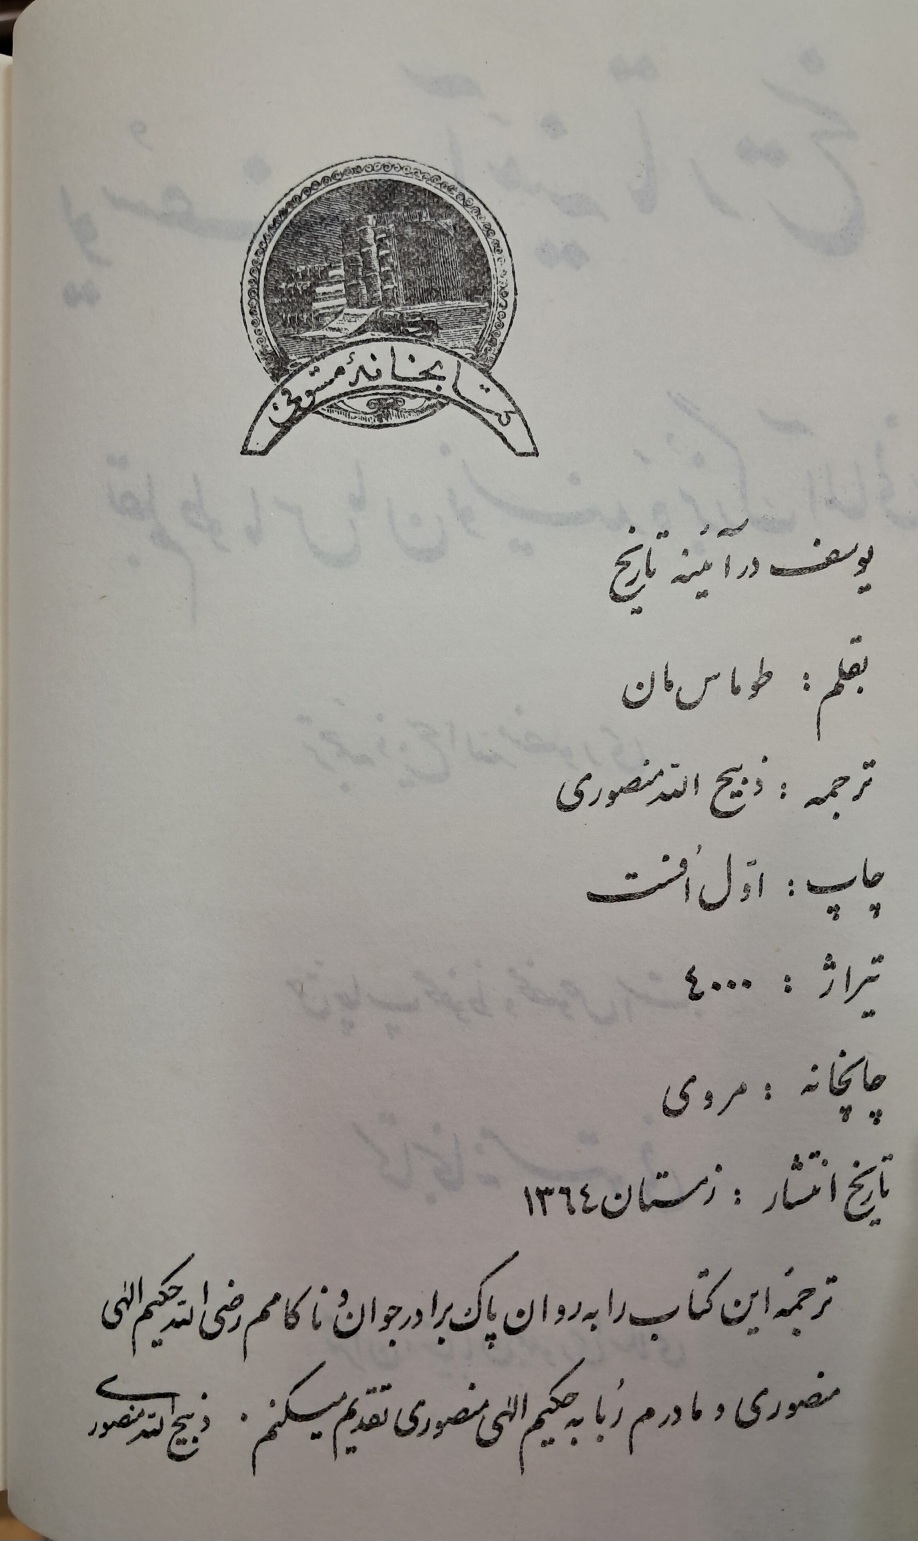 کتابخانهٔ مستوفی
یوسف در آئینه تاریخ
بقلم : طوماس مان
ترجمه : ذبیح الله منصوری
چاپ : اوّل اُفست
تیراژ : ٤٠٠٠
چاپخانه : مروی
تاریخ انتشار : زمستان ١٣٦٤
ترجمهٔ این کتاب را به روان پاک برادر جوان و ناکامم رضی الله حکیم الهی
منصوری و مادرم رُبابه حکیم الهی منصوری تقدیم میکنم . ذبیح الله منصوری